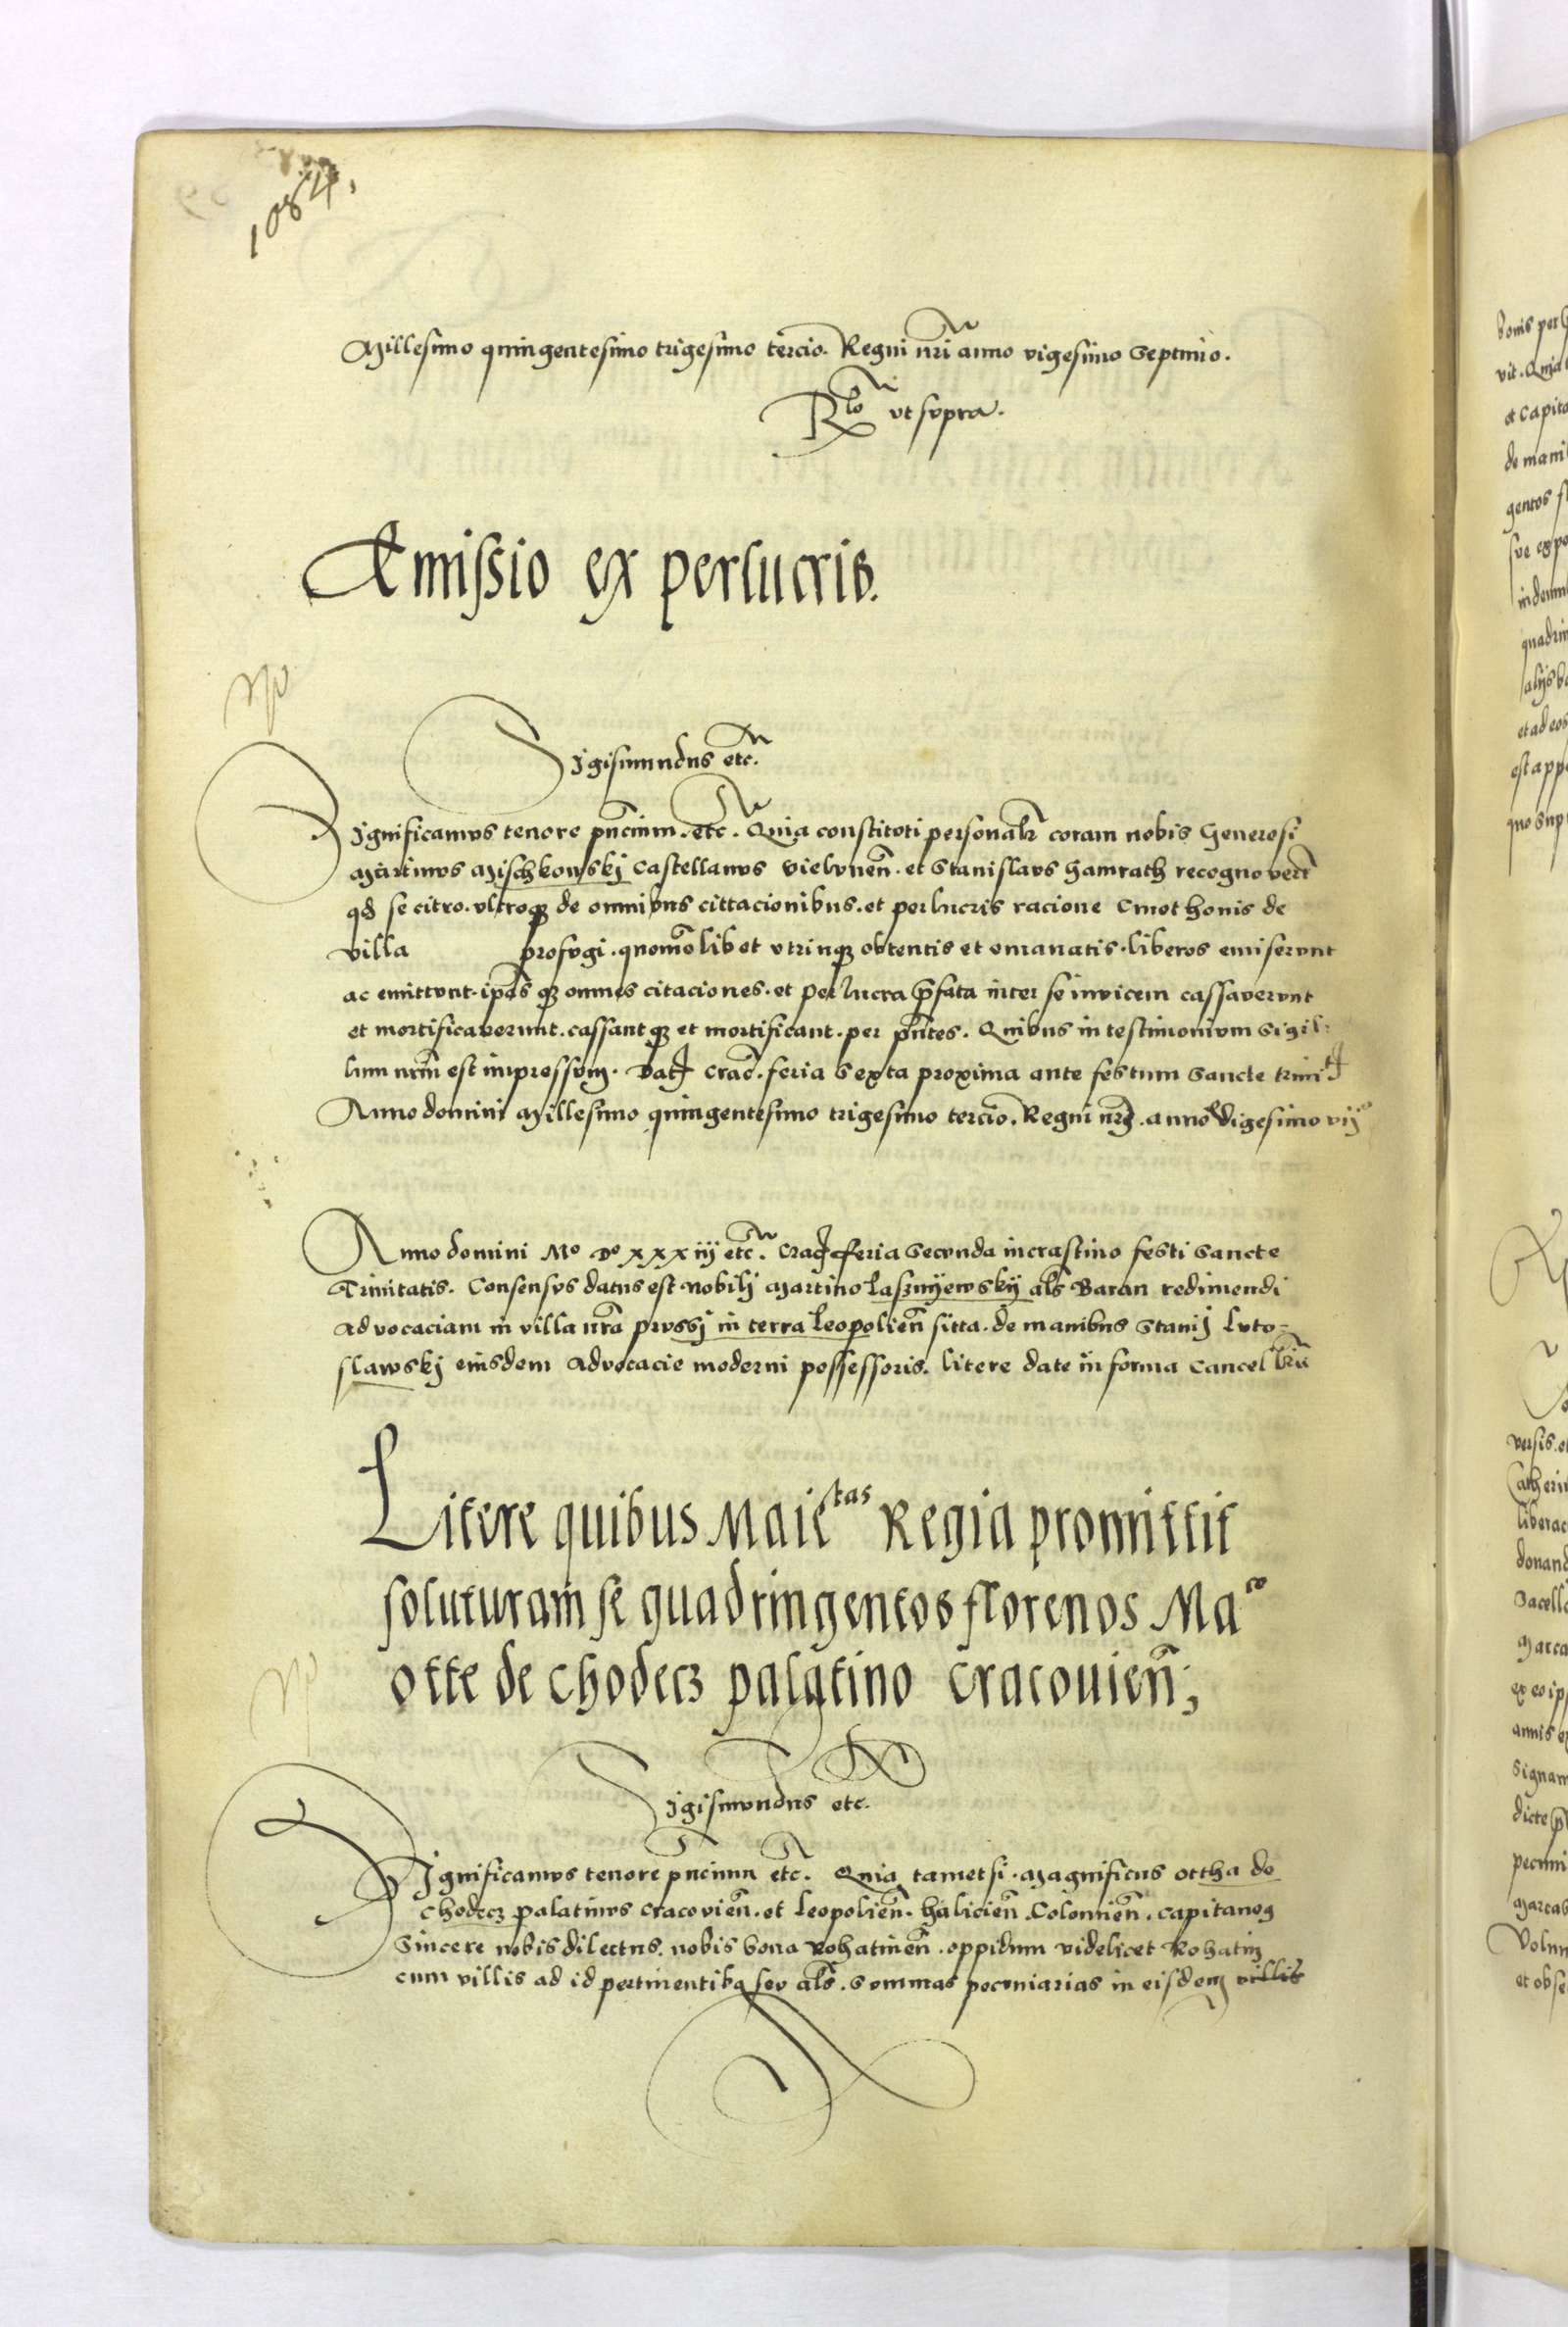 1084.
Millesimo quingentesimo trigesimo tercio. Regni nri anno vigesimo septimo.
Rlo vt supra.
Emissio ex perlucris.
Sigismundus etc.
Significamus tenore pncium. etc. Quia constituti personalr coram nobis Generosi
Martinus Mischkowskj Castellanus vielunen. et Stanislaus Hamrath recognoverr
qd se citro. vltroqz de omnibus cittacionibus. et perlucris racione Cmethonis de
villa profugi. quomolibet vtrinqz obtentis et emanatis. liberos emiserunt
ac emittunt. ipas qz omnes citaciones. et perlucra pfata inter se invicem cassaverunt
et mortificaverunt. cassant qz et mortificant. per pntes. Quibus in testimonium sigil:
lum nrm est impressum. Dat Crac. feria sexta proxima ante festum Sancte trinit
Anno domini Millesimo quingentesimo trigesimo tercio. Regni nri. anno vigesimo vij
Anno domini Mo Do xxxiij etc. Crac feria secunda incrastino festi sancte
Trinitatis. Consensus datus est Nobilj Martino Lasznyewskij als Baran redimendi
advocaciam in villa nra prussj in terra Leopolien sitta. de manibus Stanij Luto=
slawskj eiusdem Advocacie moderni possessoris. litere date in forma Cancellria
Litere quibus Maietas Regia promittit
soluturam se quadringentos florenos Maco
otte de chodecz palatino cracovien;
Sigismundus etc.
Significamus tenore pncium etc. Quia tametsi. Magnificus ottha de
Chodecz palatinus Cracovien. et Leopolien. halicien. Colomien. capitaneus
Sincere nobis dilectus. nobis bona Rohatinen. oppidum videlicet Rohatin
cum villis ad id pertinentibus seu als. summas pecuniarias in eisdem villis